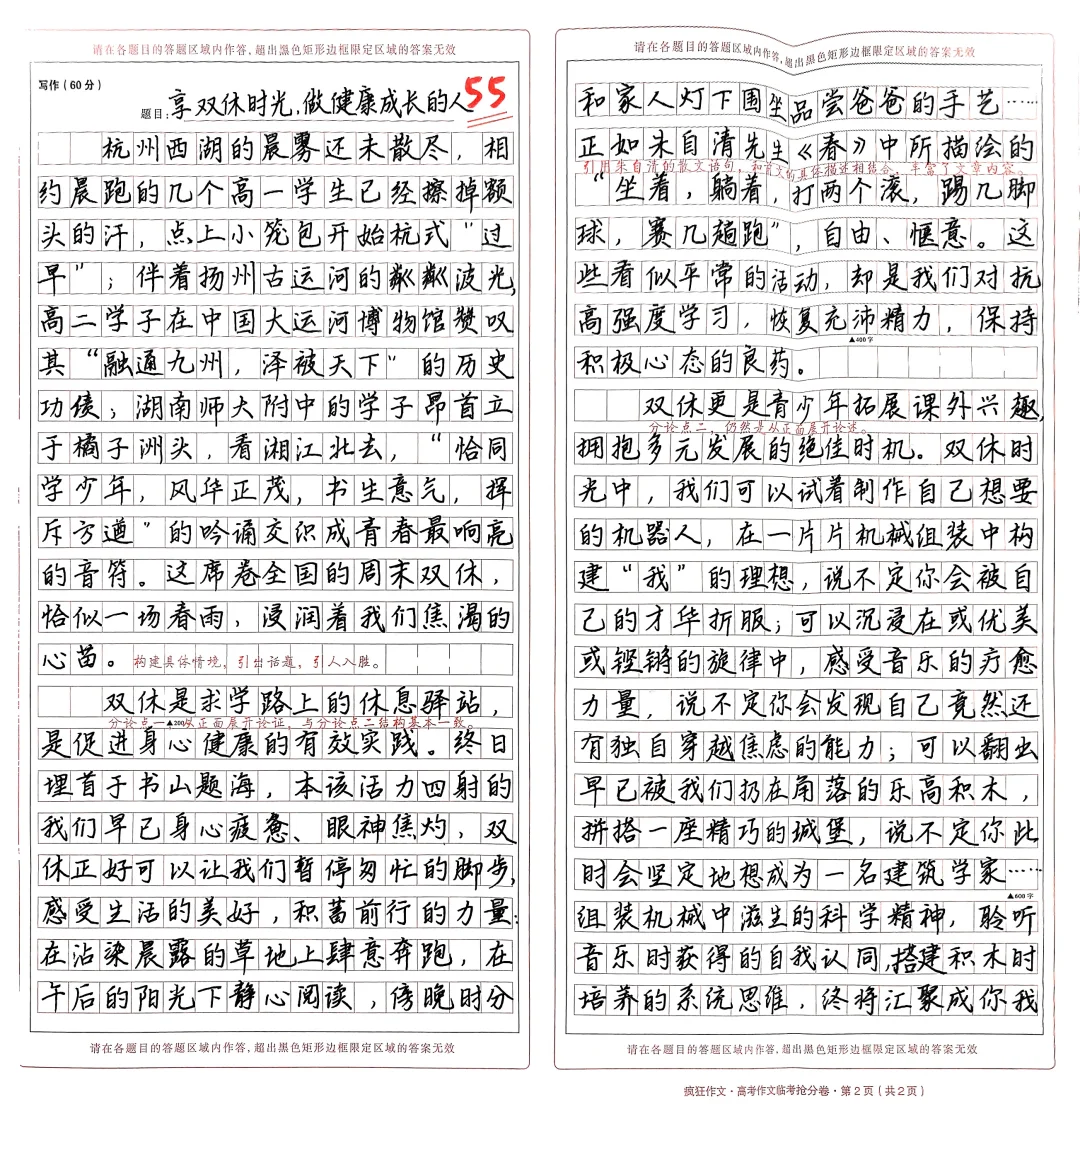 请在各题目的答题区域内作答，超出黑色矩形边框限定区域的答案无效
写作（60分）
55
题目：享双休时光，做健康成长的人
杭州西湖的晨雾还未散尽，相
约晨跑的几个高一学生已经擦掉额
头的汗，点上小笼包开始杭式“过
早”；伴着扬州古运河的粼粼波光，
高二学子在中国大运河博物馆赞叹
其“融通九州，泽被天下”的历史
功绩；湖南师大附中的学子昂首立
于橘子洲头，看湘江北去，“恰同
学少年，风华正茂，书生意气，挥
斥方遒”的吟诵交织成青春最响亮
的音符。这席卷全国的周末双休，
恰似一场春雨，浸润着我们焦渴的
心苗。构建具体情境，引出话题，引人入胜。
双休是求学路上的休息驿站，
分论点一，从正面展开论证，与分论点二结构基本一致。
▲200
是促进身心健康的有效实践。终日
埋首于书山题海，本该活力四射的
我们早已身心疲惫、眼神焦灼，双
休正好可以让我们暂停匆忙的脚步，
感受生活的美好，积蓄前行的力量：
在沾染晨露的草地上肆意奔跑，在
午后的阳光下静心阅读，傍晚时分
请在各题目的答题区域内作答，超出黑色矩形边框限定区域的答案无效
请在各题目的答题区域内作答，超出黑色矩形边框限定区域的答案无效
和家人灯下围坐品尝爸爸的手艺……
正如朱自清先生《春》中所描绘的
引用朱自清的散文语句，和前文的具体描述相结合，丰富了文章内容。
“坐着，躺着，打两个滚，踢几脚
球，赛几趟跑”，自由、惬意。这
些看似平常的活动，却是我们对抗
高强度学习，恢复充沛精力，保持
▲400字
积极心态的良药。
双休更是青少年拓展课外兴趣，
分论点二，仍然是从正面展开论述。
拥抱多元发展的绝佳时机。双休时
光中，我们可以试着制作自己想要
的机器人，在一片片机械组装中构
建“我”的理想，说不定你会被自
己的才华折服；可以沉浸在或优美
或铿锵的旋律中，感受音乐的疗愈
力量，说不定你会发现自己竟然还
有独自穿越焦虑的能力；可以翻出
早已被我们扔在角落的乐高积木，
拼搭一座精巧的城堡，说不定你此
时会坚定地想成为一名建筑学家……
▲600字
组装机械中滋生的科学精神，聆听
音乐时获得的自我认同，搭建积木时
培养的系统思维，终将汇聚成你我
请在各题目的答题区域内作答，超出黑色矩形边框限定区域的答案无效
疯狂作文·高考作文临考抢分卷·第2页（共2页）